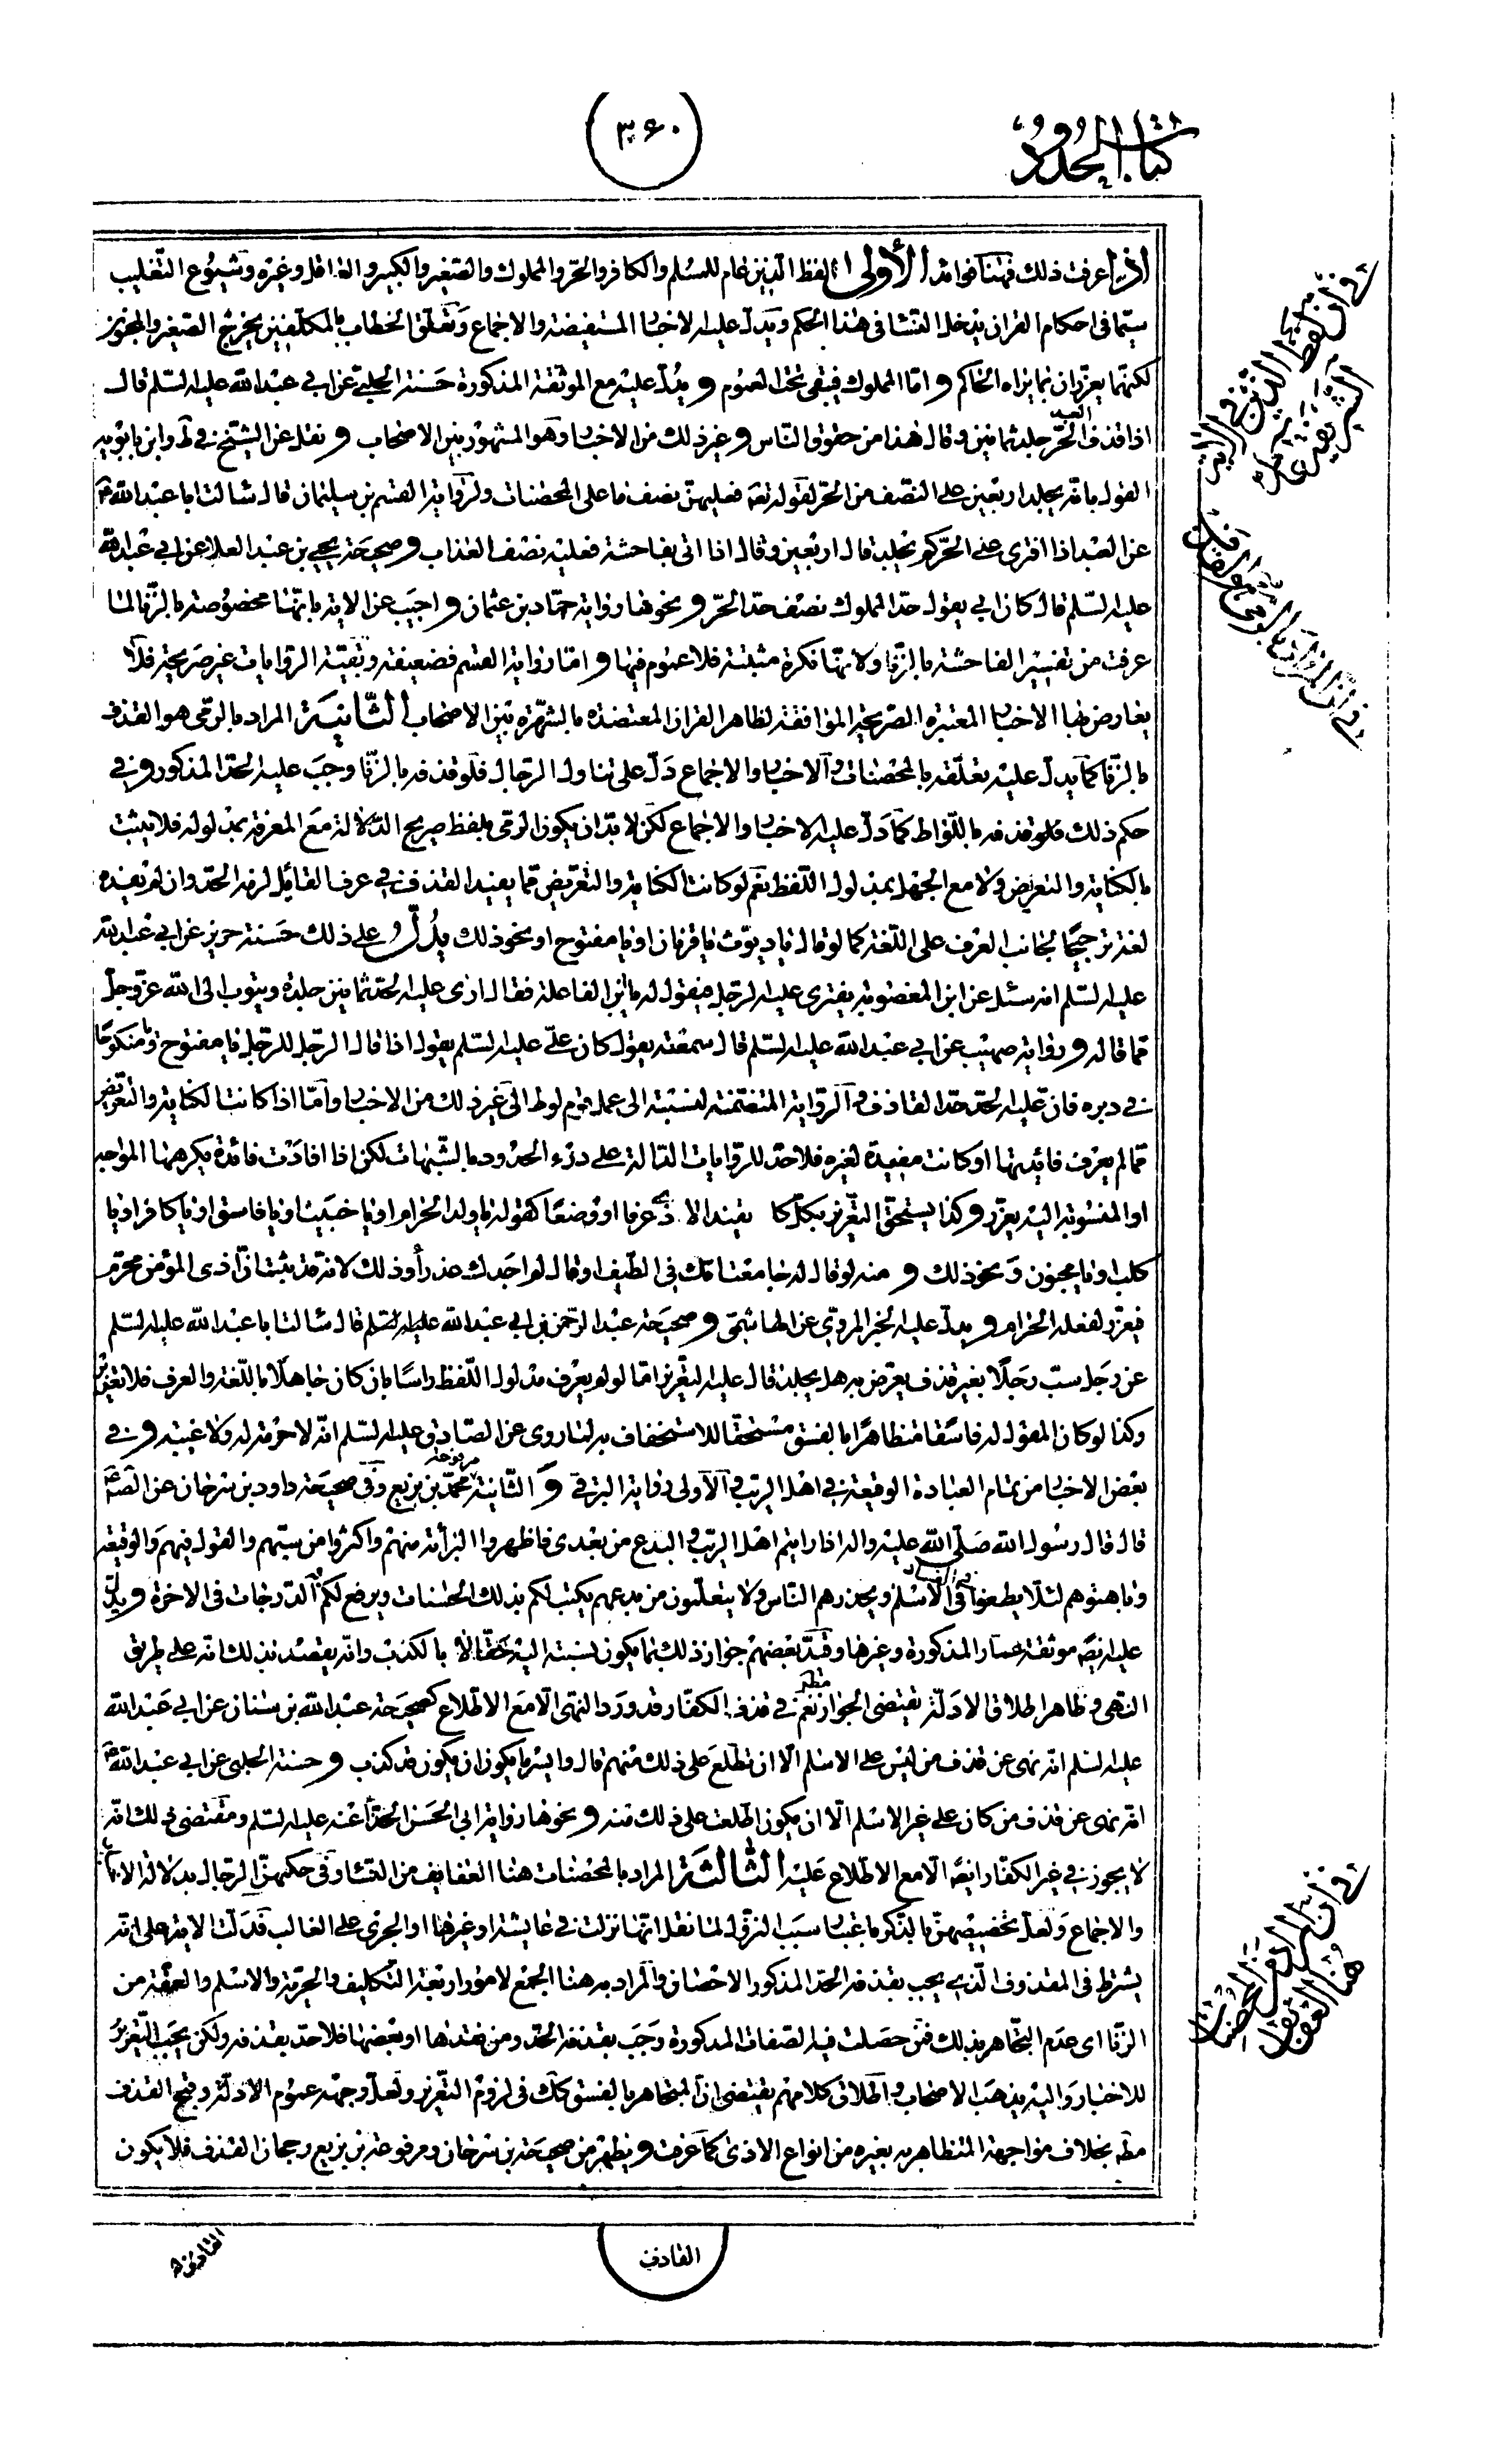 كتاب الحدود
٣٦٠
اذا عرفت ذلك فهنا فوائد الأولى لفظ الذين عام للمسلم والكافر والحر والمملوك والصغير والكبير والعاقل وغيره وشيوع التغليب
سيما في احكام القران يدخل النساء في هذا الحكم ويدل عليه الاخبار المستفيضة والاجماع وتعلق الخطاب بالمكلفين يخرج الصغير والمجنون
لكنهما يعزران بما يراه الحاكم واما المملوك فيبقى تحت العموم ويدل عليه مع الموثقة المذكورة حسنة الحلبي عن ابي عبد الله عليه السلم قال
اذا قذف العبد الحر جلد ثمانين وقال هذا من حقوق الناس وغير ذلك من الاخبار وهو المشهور بين الاصحاب ونقل عن الشيخ في ط وابن بابويه
القول بانه يجلد اربعين على النصف من الحر لقوله تعه فعليهن نصف ما على المحصنات ولرواية القسم بن سليمان قال سالت ابا عبد الله ع
عن العبد اذا افترى على الحر كم يجلد قال اربعين وقال اذا اتى بفاحشة فعليه نصف العذاب وصحيحة يحيى بن عبد العلا عن ابي عبد الله
عليه السلم قال كان ابي يقول حد المملوك نصف حد الحر ونحوها رواية حماد بن عثمان واجيب عن الاية بانها مخصوصة بالزنا لما
عرفت من تفسير الفاحشة بالزنا ولانها نكرة مثبتة فلا عموم فيها واما رواية القسم فضعيفة وبقية الروايات غير صريحة فلا
يعارض بها الاخبار المعتبرة الصريحة الموافقة لظاهر القران المعتضدة بالشهرة بين الاصحاب الثانية المراد بالرمي هو القذف
بالزنا كما يدل عليه تعلقه بالمحصنات والاخبار والاجماع دل على تناول الرجال فلو قذفه بالزنا وجب عليه الحد المذكور وفي
حكم ذلك فلو قذفه باللواط كما دل عليه الاخبار والاجماع لكن لا بد ان يكون الرمي بلفظ صريح الدلالة مع المعرفة بمدلوله فلا يثبت
بالكناية والتعريض ولا مع الجهل بمدلول اللفظ نعم لو كانت الكناية والتعريض مما يفيد القذف في عرف القائل لزمه الحد وان لم يفيده
لغة ترجيحا لجانب العرف على اللغة كما لو قال يا ديوث يا قرنان او يا مفتوح او نحو ذلك يدل على ذلك حسنة حريز عن ابي عبد الله
عليه السلم انه سئل عن ابن المغصوبة يفترى عليه الرجل فيقول له يا بن الفاعلة فقال ارى عليه الحد ثمانين جلدة ويتوب الى الله عز وجل
مما قاله ورواية صهيب عن ابي عبد الله عليه السلم قال سمعته يقول كان علي عليه السلم يقول اذا قال الرجل للرجل يا مفتوح ويا منكوحا
في دبره فان عليه الحد حد القاذف والرواية المتضمنة لنسبته الى عمل قوم لوط الى غير ذلك من الاخبار واما اذا كانت الكناية والتعريض
مما لم يعرف فائدتها او كانت مفيدة لغيره فلا حد للروايات الدالة على درء الحدود بالشبهات لكن اذا افادت فائدة يكرهها المواجه
او المنسوبة اليه يعزر وكذا يستحق التعزير بكل كا يفيد الاذى عرفا او وضعا كقوله يا ولد الحرام او يا خبيث او يا فاسق او يا كافر او يا
كلب او يا مجنون ونحو ذلك ومنه لو قال له جامعت امك في الطيف او قال لم اجدك عذراء وذلك لانه قد يثبت ان اذى المؤمن محرم
فيعزر لفعله الحرام ويدل عليه الخبر المروي عن الهاشمي وصحيحة عبد الرحمن بن ابي عبد الله عليه السلم قال سالت ابا عبد الله عليه السلم
عن رجل سب رجلا بغير قذف يعرض به هل يجلد قال عليه التعزير اما لو لم يعرف مدلول اللفظ راسا بان كان جاهلا باللغة والعرف فلا تعزير
وكذا لو كان المقول له فاسقا متظاهرا بالفسق مستحقا للاستخفاف به لما روى عن الصادق عليه السلم انه لا حرمة له ولا غيبة وفي
بعض الاخبار من تمام العبادة الوقيعة في اهل الريب والاولى رواية البرقي والثانية مرفوعة محمد بن بزيع وفي صحيحة داود بن سرحان عن الصه ع
قال قال رسول الله صلى الله عليه واله اذا رايتم اهل الريب والبدع من بعدي فاظهروا البرأة منهم واكثروا من سبهم والقول فيهم والوقيعة
وباهتوهم لئلا يطمعوا في الفساد في الاسلم ويحذرهم الناس ولا يتعلمون من بدعهم يكتب لكم بذلك الحسنات ويرفع لكم به الدرجات في الاخرة ويدل
عليه ايضه موثقة عمار المذكورة وغيرها وقيد بعضهم جواز ذلك بما يكون نسبته اليه حقا لا بالكذب وانه يقصد بذلك انه على طريق
النهي وظاهر اطلاق الادلة يقتضي الجواز مطه نعم في قذف الكفار قد ورد النهي الا مع الاطلاع كصحيحة عبد الله بن سنان عن ابي عبد الله
عليه السلم انه نهى عن قذف من ليس على الاسلم الا ان تطلع على ذلك منهم قال وايسر ما يكون ان يكون قد كذب وحسنة الحلبي عن ابي عبد الله ع
انه نهى عن قذف من كان على غير الاسلم الا ان يكون اطلعت على ذلك منه ونحوها رواية ابي الحسن الحذاء عنه عليه السلم ومقتضى ذلك انه
لا يجوز في غير الكفار ايضه الا مع الاطلاع عليه الثالثة المراد بالمحصنات هنا العفايف من النساء وفي حكمهن الرجال بدلالة الايماء
والاجماع ولعل تخصيصهن بالذكر باعتبار سبب النزول لما نقل انها نزلت في عايشة او غيرها او الجرى على الغالب فدلت الاية على انه
يشترط في المقذوف الذي يجب بقذفه الحد المذكور الاحصان والمراد به هنا الجمع لامور اربعة التكليف والحرية والاسلم والعفة من
الزنا اى عدم التجاهر بذلك فمن حصلت فيه الصفات المذكورة وجب بقذفه الحد ومن فقدها او بعضها فلا حد بقذفه ولكن يجب التعزير
للاخبار واليه يذهب الاصحاب واطلاق كلامهم يقتضي ان المتجاهر بالفسق كك في لزوم التعزير ولعل وجهه عموم الادلة وقبح القذف
مطه بخلاف مواجهة المتظاهر به بغيره من انواع الاذى كما عرفت ويظهر من صحيحة بن سرحان ومرفوعة بن بزيع رجحان القذف فلا يكون
القاذف
في ان لفظ الذين في الاية
في ان المراد بالرمي هو القذف
في ان المراد من المحصنات
هنا العفايف